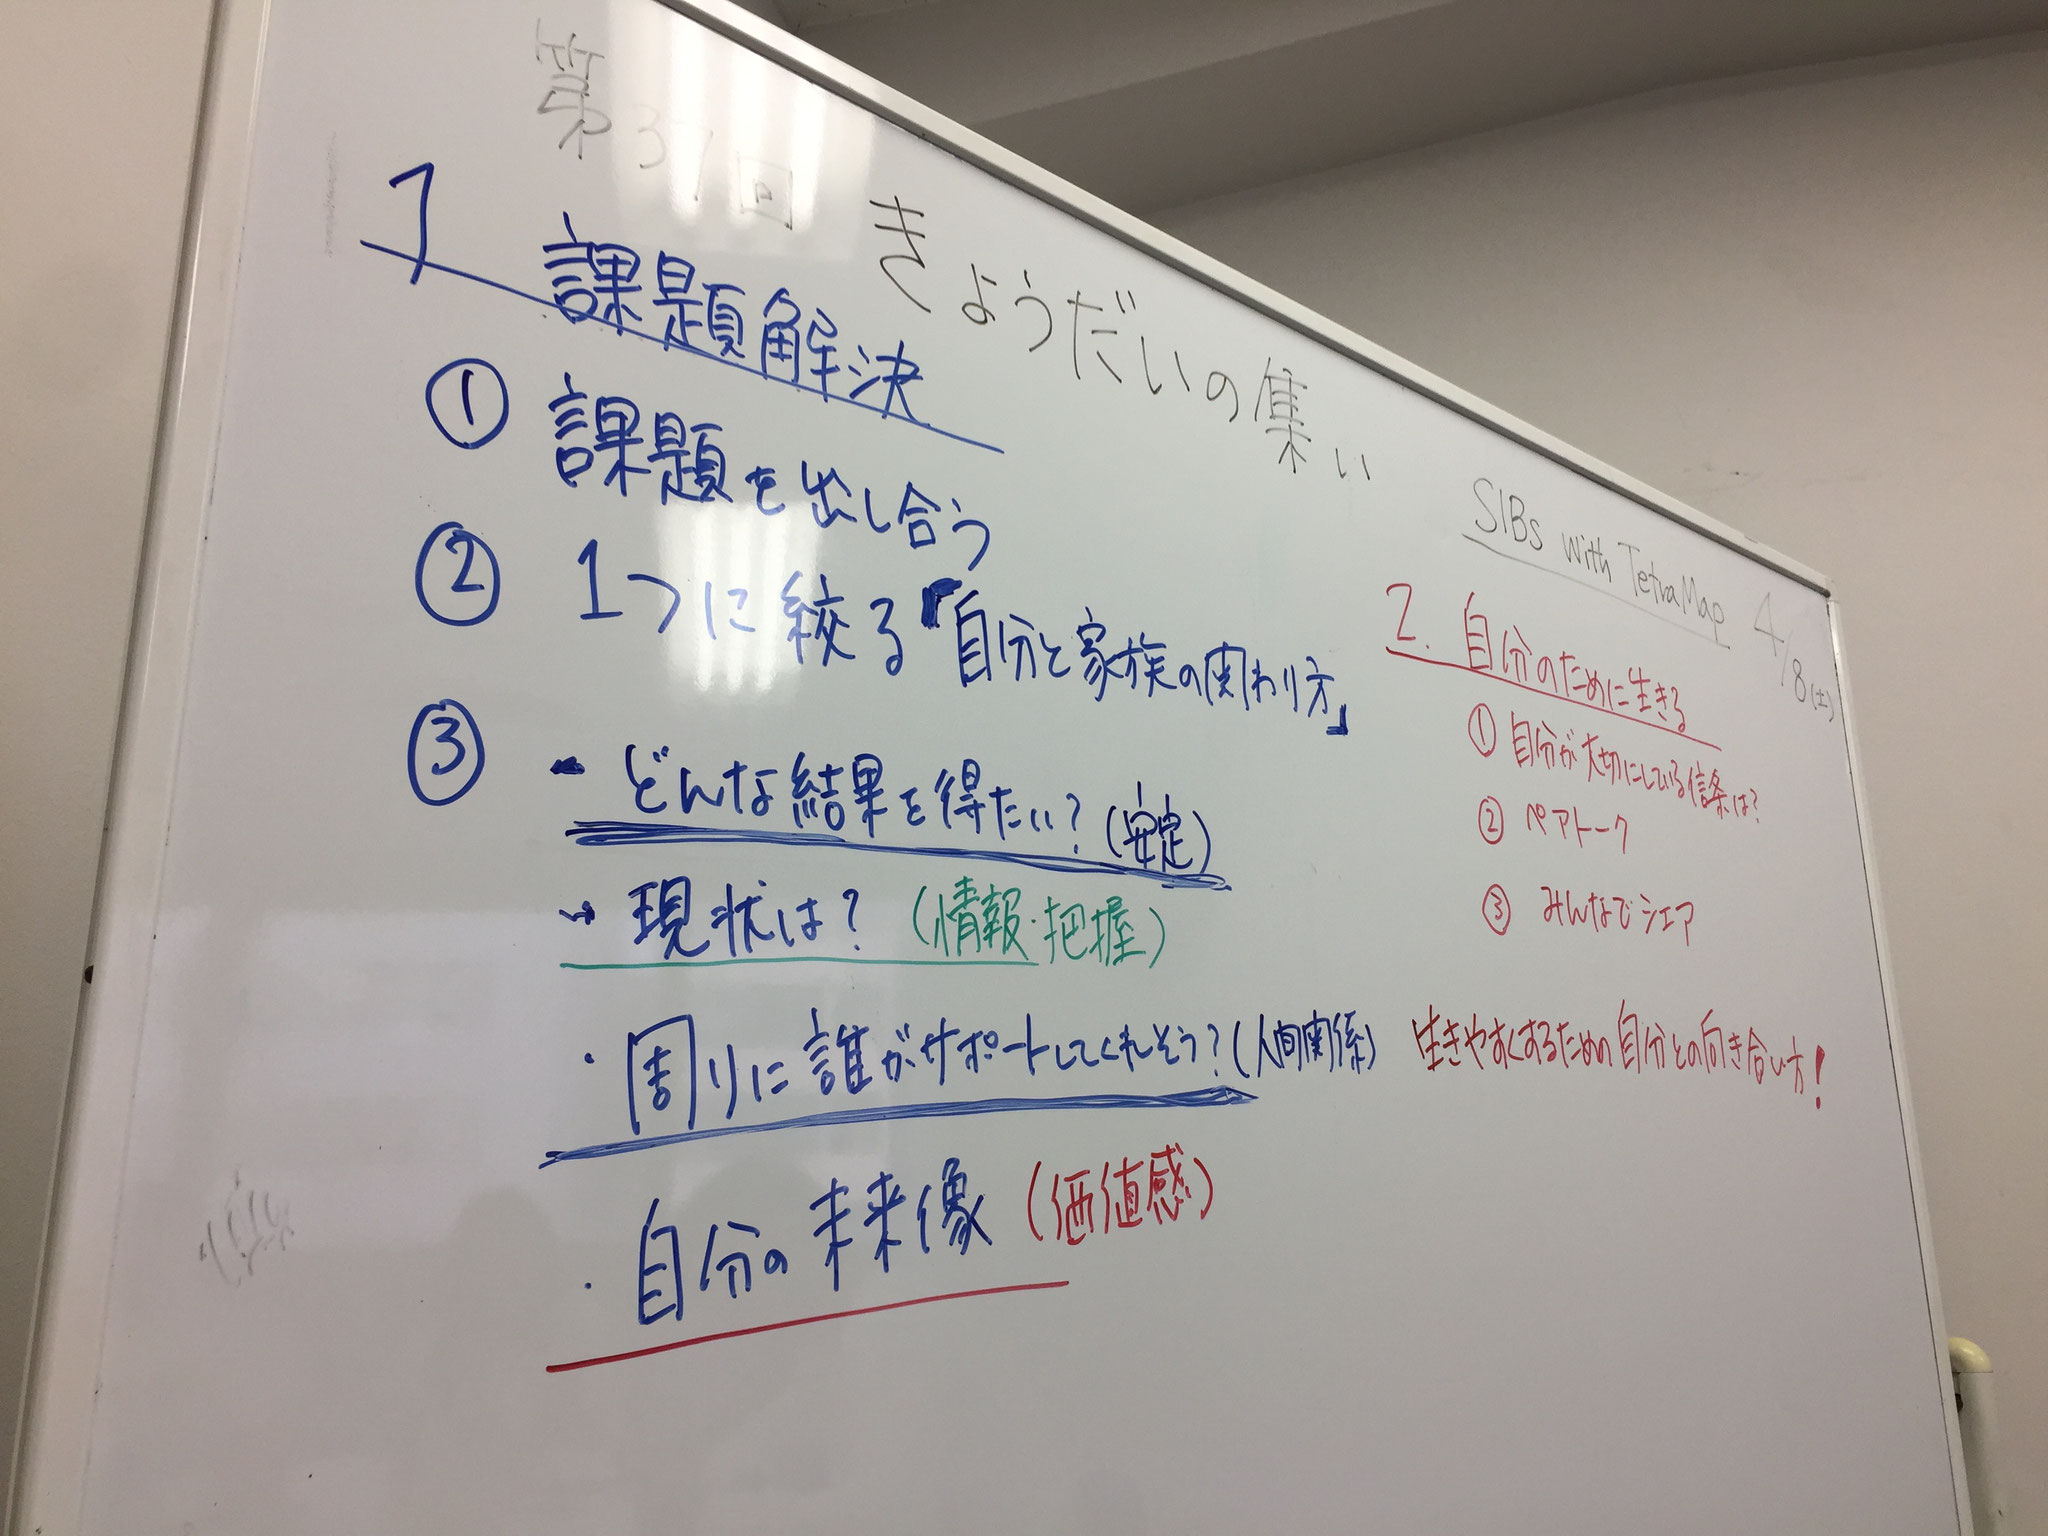 第37回 きょうだいの集い
SIBs with TetraMap 4/8(土)
1 課題解決
① 課題を出し合う
② 1つに絞る「自分と家族の関わり方」
③ - どんな結果を得たい?(安定)
→ 現状は?(情報・把握)
・周りに誰がサポートしてくれそう?(人間関係)
・自分の未来像(価値感)
2. 自分のために生きる
① 自分が大切にしている信条は?
② ペアトーク
③ みんなでシェア
生きやすくするための自分との向き合い方!